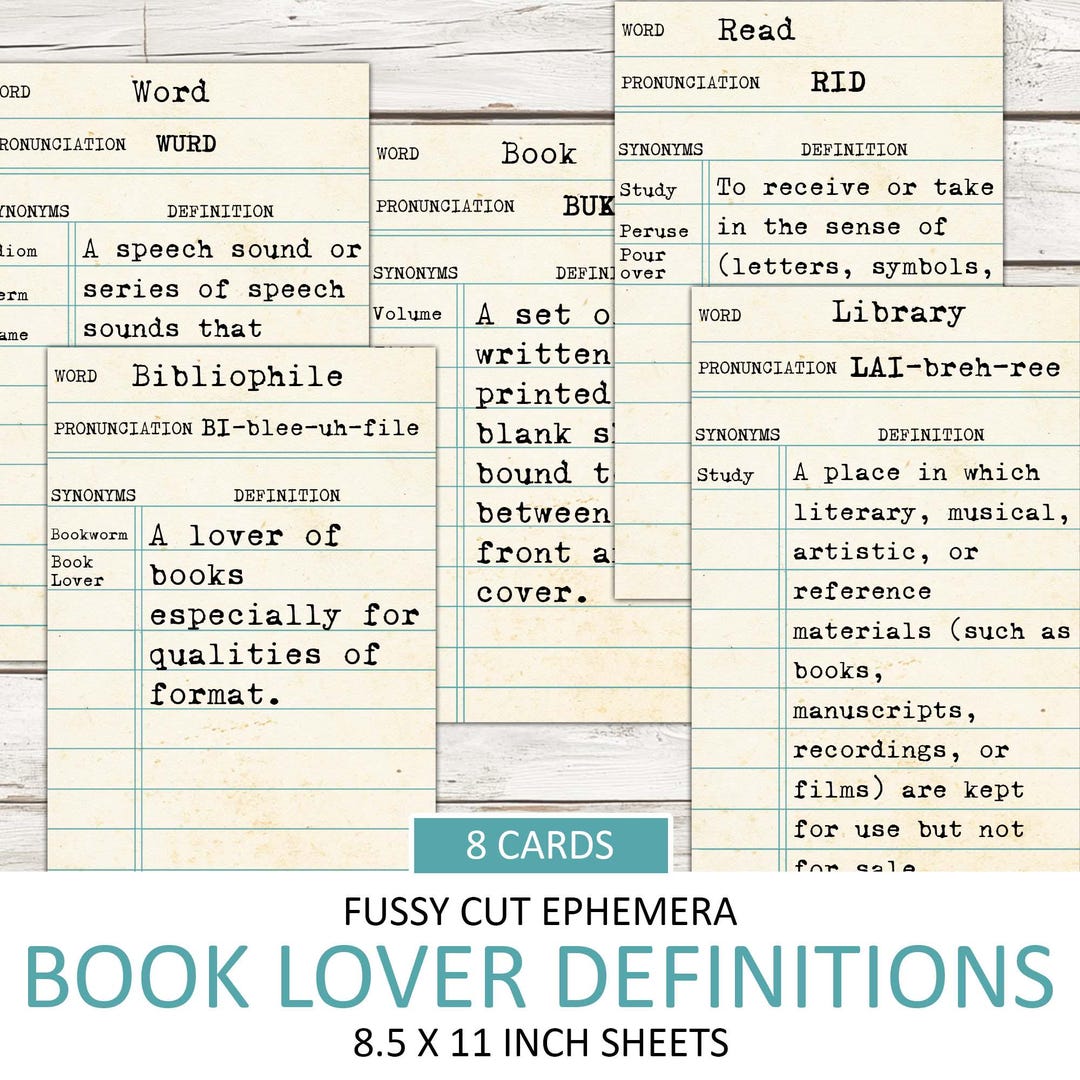 WORD Read
PRONUNCIATION RID
SYNONYMS DEFINITION
Study To receive or take
Peruse in the sense of
Pour
over (letters, symbols,
ORD Word
RONUNCIATION WURD
YNONYMS DEFINITION
diom A speech sound or
erm series of speech
ame sounds that
WORD Book
PRONUNCIATION BUK
SYNONYMS DEFINI
Volume A set o
written
printed
blank s
bound t
between
front a
cover.
WORD Library
PRONUNCIATION LAI-breh-ree
SYNONYMS DEFINITION
Study A place in which
literary, musical,
artistic, or
reference
materials (such as
books,
manuscripts,
recordings, or
films) are kept
for use but not
for sale
WORD Bibliophile
PRONUNCIATION BI-blee-uh-file
SYNONYMS DEFINITION
Bookworm A lover of
Book
Lover books
especially for
qualities of
format.
8 CARDS
FUSSY CUT EPHEMERA
BOOK LOVER DEFINITIONS
8.5 X 11 INCH SHEETS